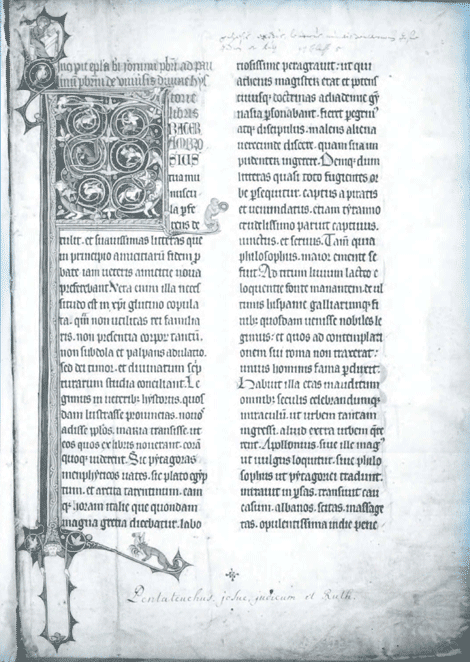 torie
libris
RATER
AMBRO
SIUS
tua mi
la pfe
rens de
tulit. et suauissimas litteras que
in principio amiciciarū fidem p
bate iam ueteris amicicie noua
preferebant. Vera enim illa neces
situdo est et xpi glutino copula
ta. quā non utilitas rei familia
ris. non presentia corpoꝝ tantū.
non subdola et palpans adulatio.
sed dei timor. et diuinarū scrip
turarum studia conciliant. Le
gimus in ueteribꝫ hystoriis. quos
dam lustrasse prouincias. nouos
adisse pplos. maria transisse. ut
eos quos ex libris nouerant. corā
quoqꝫ uiderent. Sic pytagoras
memphyticos uates. sic plato egyp
tum. et archita tarentinum. eam
qꝫ horam italie que quondam
magna grecia dicebatur. labo
riosissime peragrauit. ut qui
athenis magister erat et potens
cuiusqꝫ doctrinas achademie gy
nasia psonabant. fieret pegrinꝰ
atqꝫ discipulus. malens aliena
uerecunde discere. quam sua im
pudenter ingerere. Deniqꝫ dum
litteras quasi toto fugientes or
be psequitur. captus a piratis
et uenundatus. etiam tyranno
crudelissimo paruit. captiuus.
uinctus. et seruus. Tam̄ quia
philosophus. maior emente se
fuit. Ad titum liuium lacteo e
loquentie fonte manantem. de ul
timis hispanie galliarumqꝫ fi
nibꝫ quosdam uenisse nobiles le
gimus. et quos ad contemplati
onem sui roma non traxerat.
unius hominis fama pduxit.
Habuit illa etas inauditum
omnibꝫ seculis celebrandumqꝫ
miraculū. ut urbem tantam
ingressi. aliud extra urbem que
rerent. Apollonius. siue ille magꝰ
ut uulgus loquitur. siue philo
sophus ut pytagorici tradunt.
intrauit psas. transiuit cau
casum. albanos. scitas. massage
tas. opulentissima indie pene
Pentateuchus, josue, judicum et Ruth.